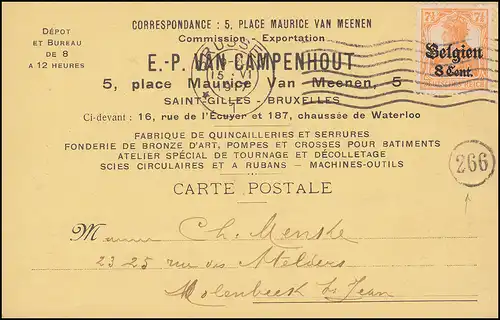 CORRESPONDANCE : 5, PLACE MAURICE VAN MEENEN
Commission - Exportation
DÉPOT
ET BUREAU
DE 8
A 12 HEURES
E.-P. VAN CAMPENHOUT
5, place Maurice Van Meenen, 5
SAINT-GILLES - BRUXELLES
Ci-devant : 16, rue de l'Écuyer et 187, chaussée de Waterloo
FABRIQUE DE QUINCAILLERIES ET SERRURES
FONDERIE DE BRONZE D'ART, POMPES ET CROSSES POUR BATIMENTS
ATELIER SPÉCIAL DE TOURNAGE ET DÉCOLLETAGE
SCIES CIRCULAIRES ET A RUBANS - MACHINES-OUTILS
CARTE POSTALE
7½ 7½
Belgien
8 Cent.
266
Ch. Menske
23-25 rue des Ateliers
Molenbeek St Jean